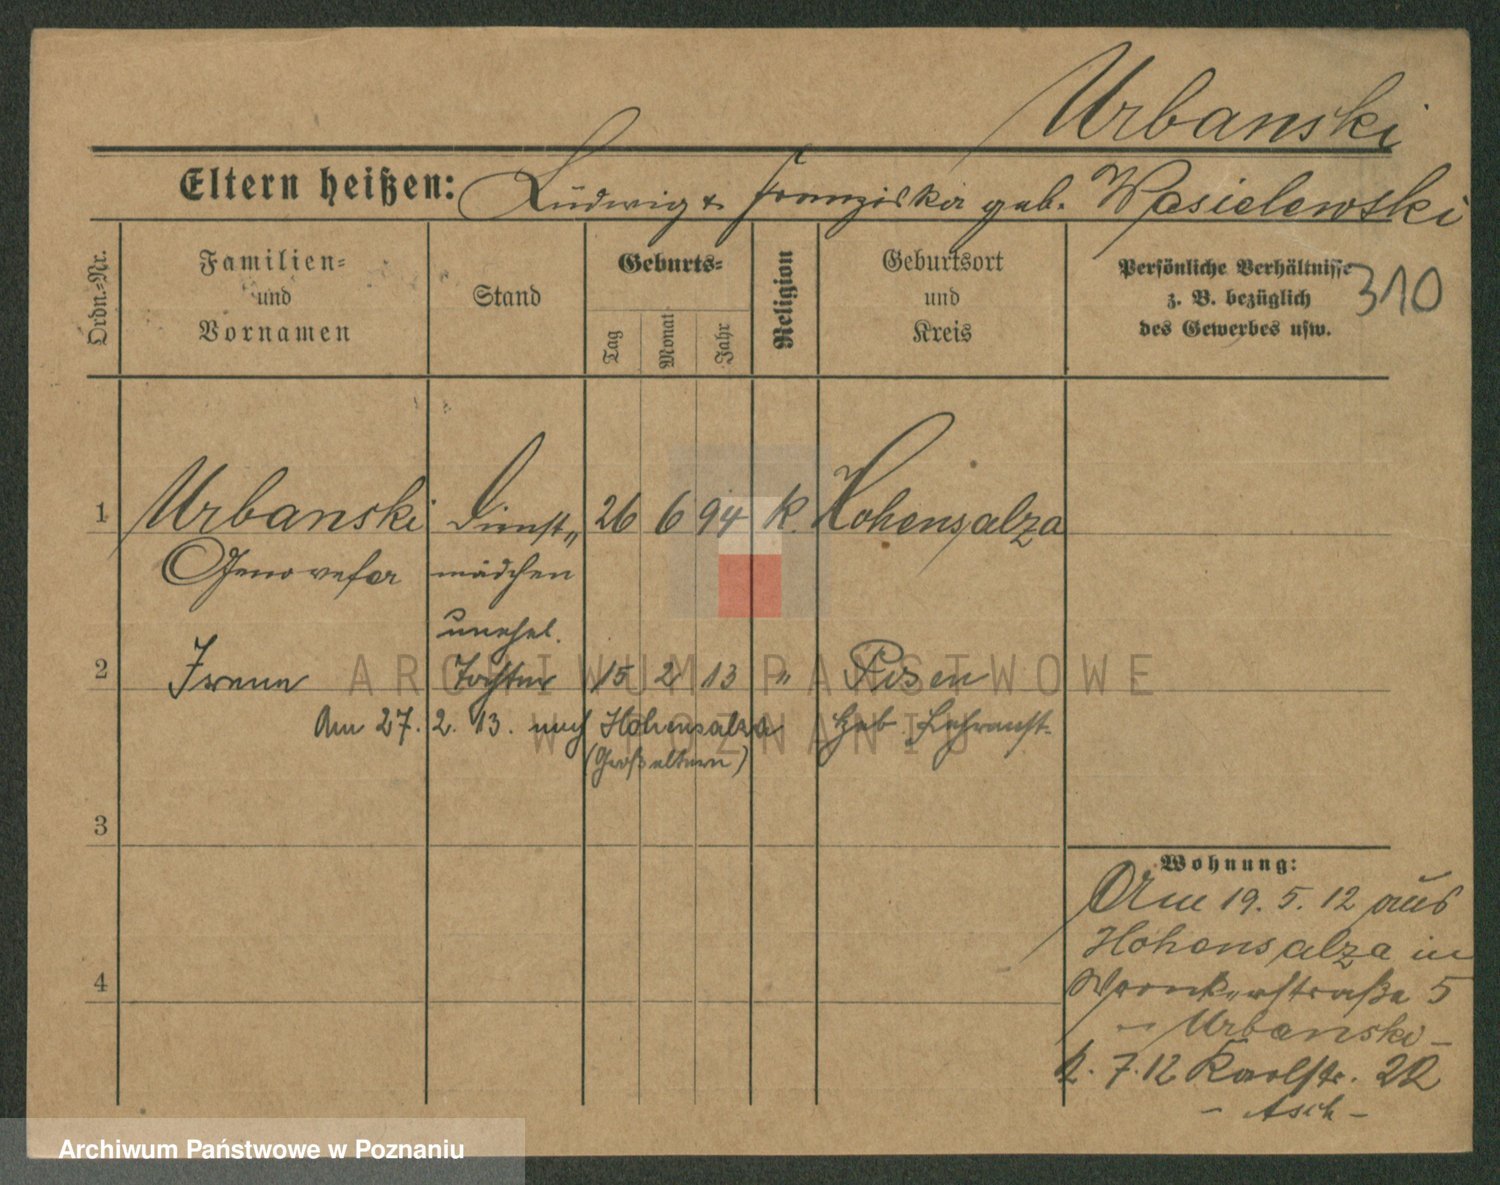 Urbanski
Eltern heißen: Ludwig & Franziska geb. Wasielewski
Ordn.-Nr.
Familien-
und
Vornamen
Stand
Geburts-
Tag
Monat
Jahr
Religion
Geburtsort
und
Kreis
Persönliche Verhältnisse
z. B. bezüglich
des Gewerbes usw.
310
1 Urbanski Dienst- 26 6 94 k. Hohensalza
Genovefa mädchen
unehel.
2 Irene Tochter 15 2 13 " Posen
Am 27. 2. 13. nach Hohensalza Heb. Lehranst.
(Großeltern)
3
4
Wohnung:
Am 19. 5. 12 aus
Hohensalza in
Wronkerstraße 5
- Urbanski -
7. 12 Karlstr. 22
- Asch -
ARCHIWUM PAŃSTWOWE
W POZNANIU
Archiwum Państwowe w Poznaniu